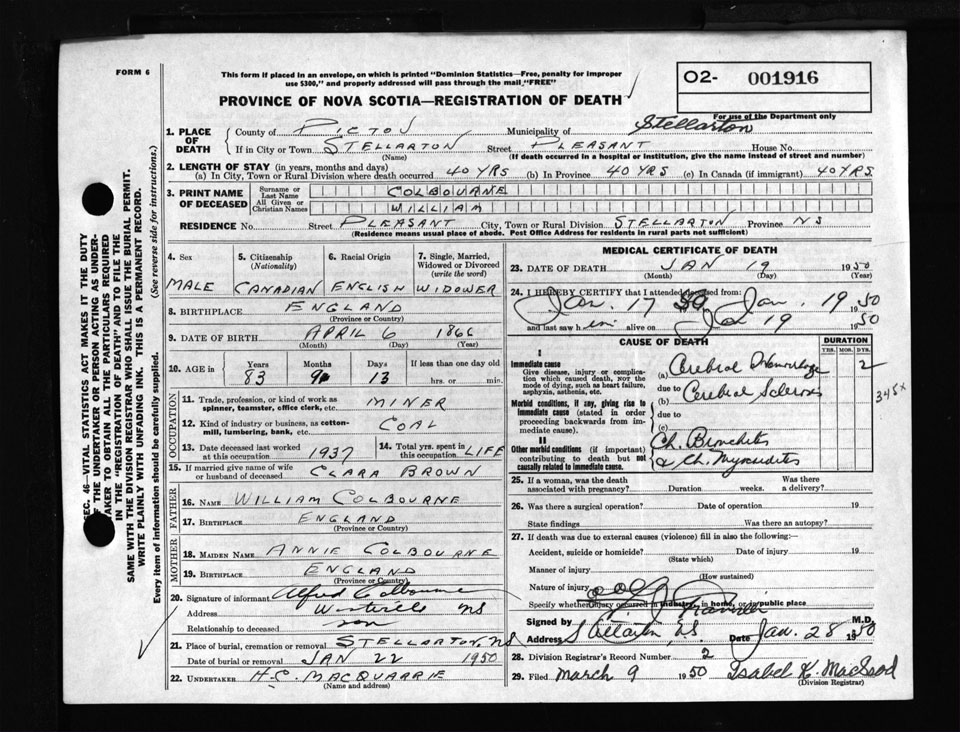 FORM 6
This form if placed in an envelope, on which is printed "Dominion Statistics—Free, penalty for improper
use $300," and properly addressed will pass through the mail "FREE"
O2- 001916
For use of the Department only
PROVINCE OF NOVA SCOTIA—REGISTRATION OF DEATH
1. PLACE OF DEATH
County of PICTOU Municipality of Stellarton
If in City or Town STELLARTON Street PLEASANT House No.
(Name) (If death occurred in a hospital or institution, give the name instead of street and number)
2. LENGTH OF STAY (in years, months and days)
(a) In City, Town or Rural Division where death occurred 40 YRS (b) In Province 40 YRS (c) In Canada (if immigrant) 40 YRS
3. PRINT NAME OF DECEASED
Surname or Last Name COLBOURNE
All Given or Christian Names WILLIAM
RESIDENCE No. Street PLEASANT City, Town or Rural Division STELLARTON Province NS
(Residence means usual place of abode. Post Office Address for residents in rural parts not sufficient)
4. Sex 5. Citizenship (Nationality) 6. Racial Origin 7. Single, Married, Widowed or Divorced (write the word)
MALE CANADIAN ENGLISH WIDOWER
8. BIRTHPLACE ENGLAND
(Province or Country)
9. DATE OF BIRTH APRIL 6 1866
(Month) (Day) (Year)
10. AGE in Years Months Days If less than one day old
83 9 13 hrs. or min.
OCCUPATION
11. Trade, profession, or kind of work as spinner, teamster, office clerk, etc. MINER
12. Kind of industry or business, as cotton-mill, lumbering, bank, etc. COAL
13. Date deceased last worked at this occupation 1937 14. Total yrs. spent in this occupation LIFE
15. If married give name of wife or husband of deceased CLARA BROWN
FATHER
16. NAME WILLIAM COLBOURNE
17. BIRTHPLACE ENGLAND
(Province or Country)
MOTHER
18. MAIDEN NAME ANNIE COLBOURNE
19. BIRTHPLACE ENGLAND
(Province or Country)
20. Signature of informant Alfred Colbourne
Address Westville NS
Relationship to deceased son
21. Place of burial, cremation or removal STELLARTON, NS
Date of burial or removal JAN 22 1950
22. UNDERTAKER H.C. MACQUARRIE
(Name and address)
MEDICAL CERTIFICATE OF DEATH
23. DATE OF DEATH JAN 19 1950
(Month) (Day) (Year)
24. I HEREBY CERTIFY that I attended deceased from:
Jan. 17 50 Jan. 19 1950
and last saw him alive on Jan 19 1950
CAUSE OF DEATH
DURATION
YRS. MOS. DYS.
I
Immediate cause
Give disease, injury or complication which caused death, not the mode of dying, such as heart failure, asphyxia, asthenia, etc.
(a) Cerebral Hemorrhage 2
due to
Morbid conditions, if any, giving rise to immediate cause (stated in order proceeding backwards from immediate cause).
(b) Cerebral Sclerosis
due to
(c)
345 x
II
Other morbid conditions (if important) contributing to death but not causally related to immediate cause.
Ch. Bronchitis
& Ch. Myocarditis
25. If a woman, was the death associated with pregnancy? Duration weeks. Was there a delivery?
26. Was there a surgical operation? Date of operation 19
State findings Was there an autopsy?
27. If death was due to external causes (violence) fill in also the following:—
Accident, suicide or homicide? Date of injury 19
(State which)
Manner of injury
(How sustained)
Nature of injury
Specify whether injury occurred in industry, in home, or in public place
Signed by M.D.
Address Stellarton, N.S. Date Jan. 28 1950
28. Division Registrar's Record Number 2
29. Filed March 9 1950 Isabel K. MacLeod
(Division Registrar)
SEC. 46—VITAL STATISTICS ACT MAKES IT THE DUTY
OF THE UNDERTAKER OR PERSON ACTING AS UNDER-
TAKER TO OBTAIN ALL THE PARTICULARS REQUIRED
IN THE "REGISTRATION OF DEATH" AND TO FILE THE
SAME WITH THE DIVISION REGISTRAR WHO SHALL ISSUE THE BURIAL PERMIT.
WRITE PLAINLY WITH UNFADING INK. THIS IS A PERMANENT RECORD.
Every item of information should be carefully supplied. (See reverse side for instructions.)